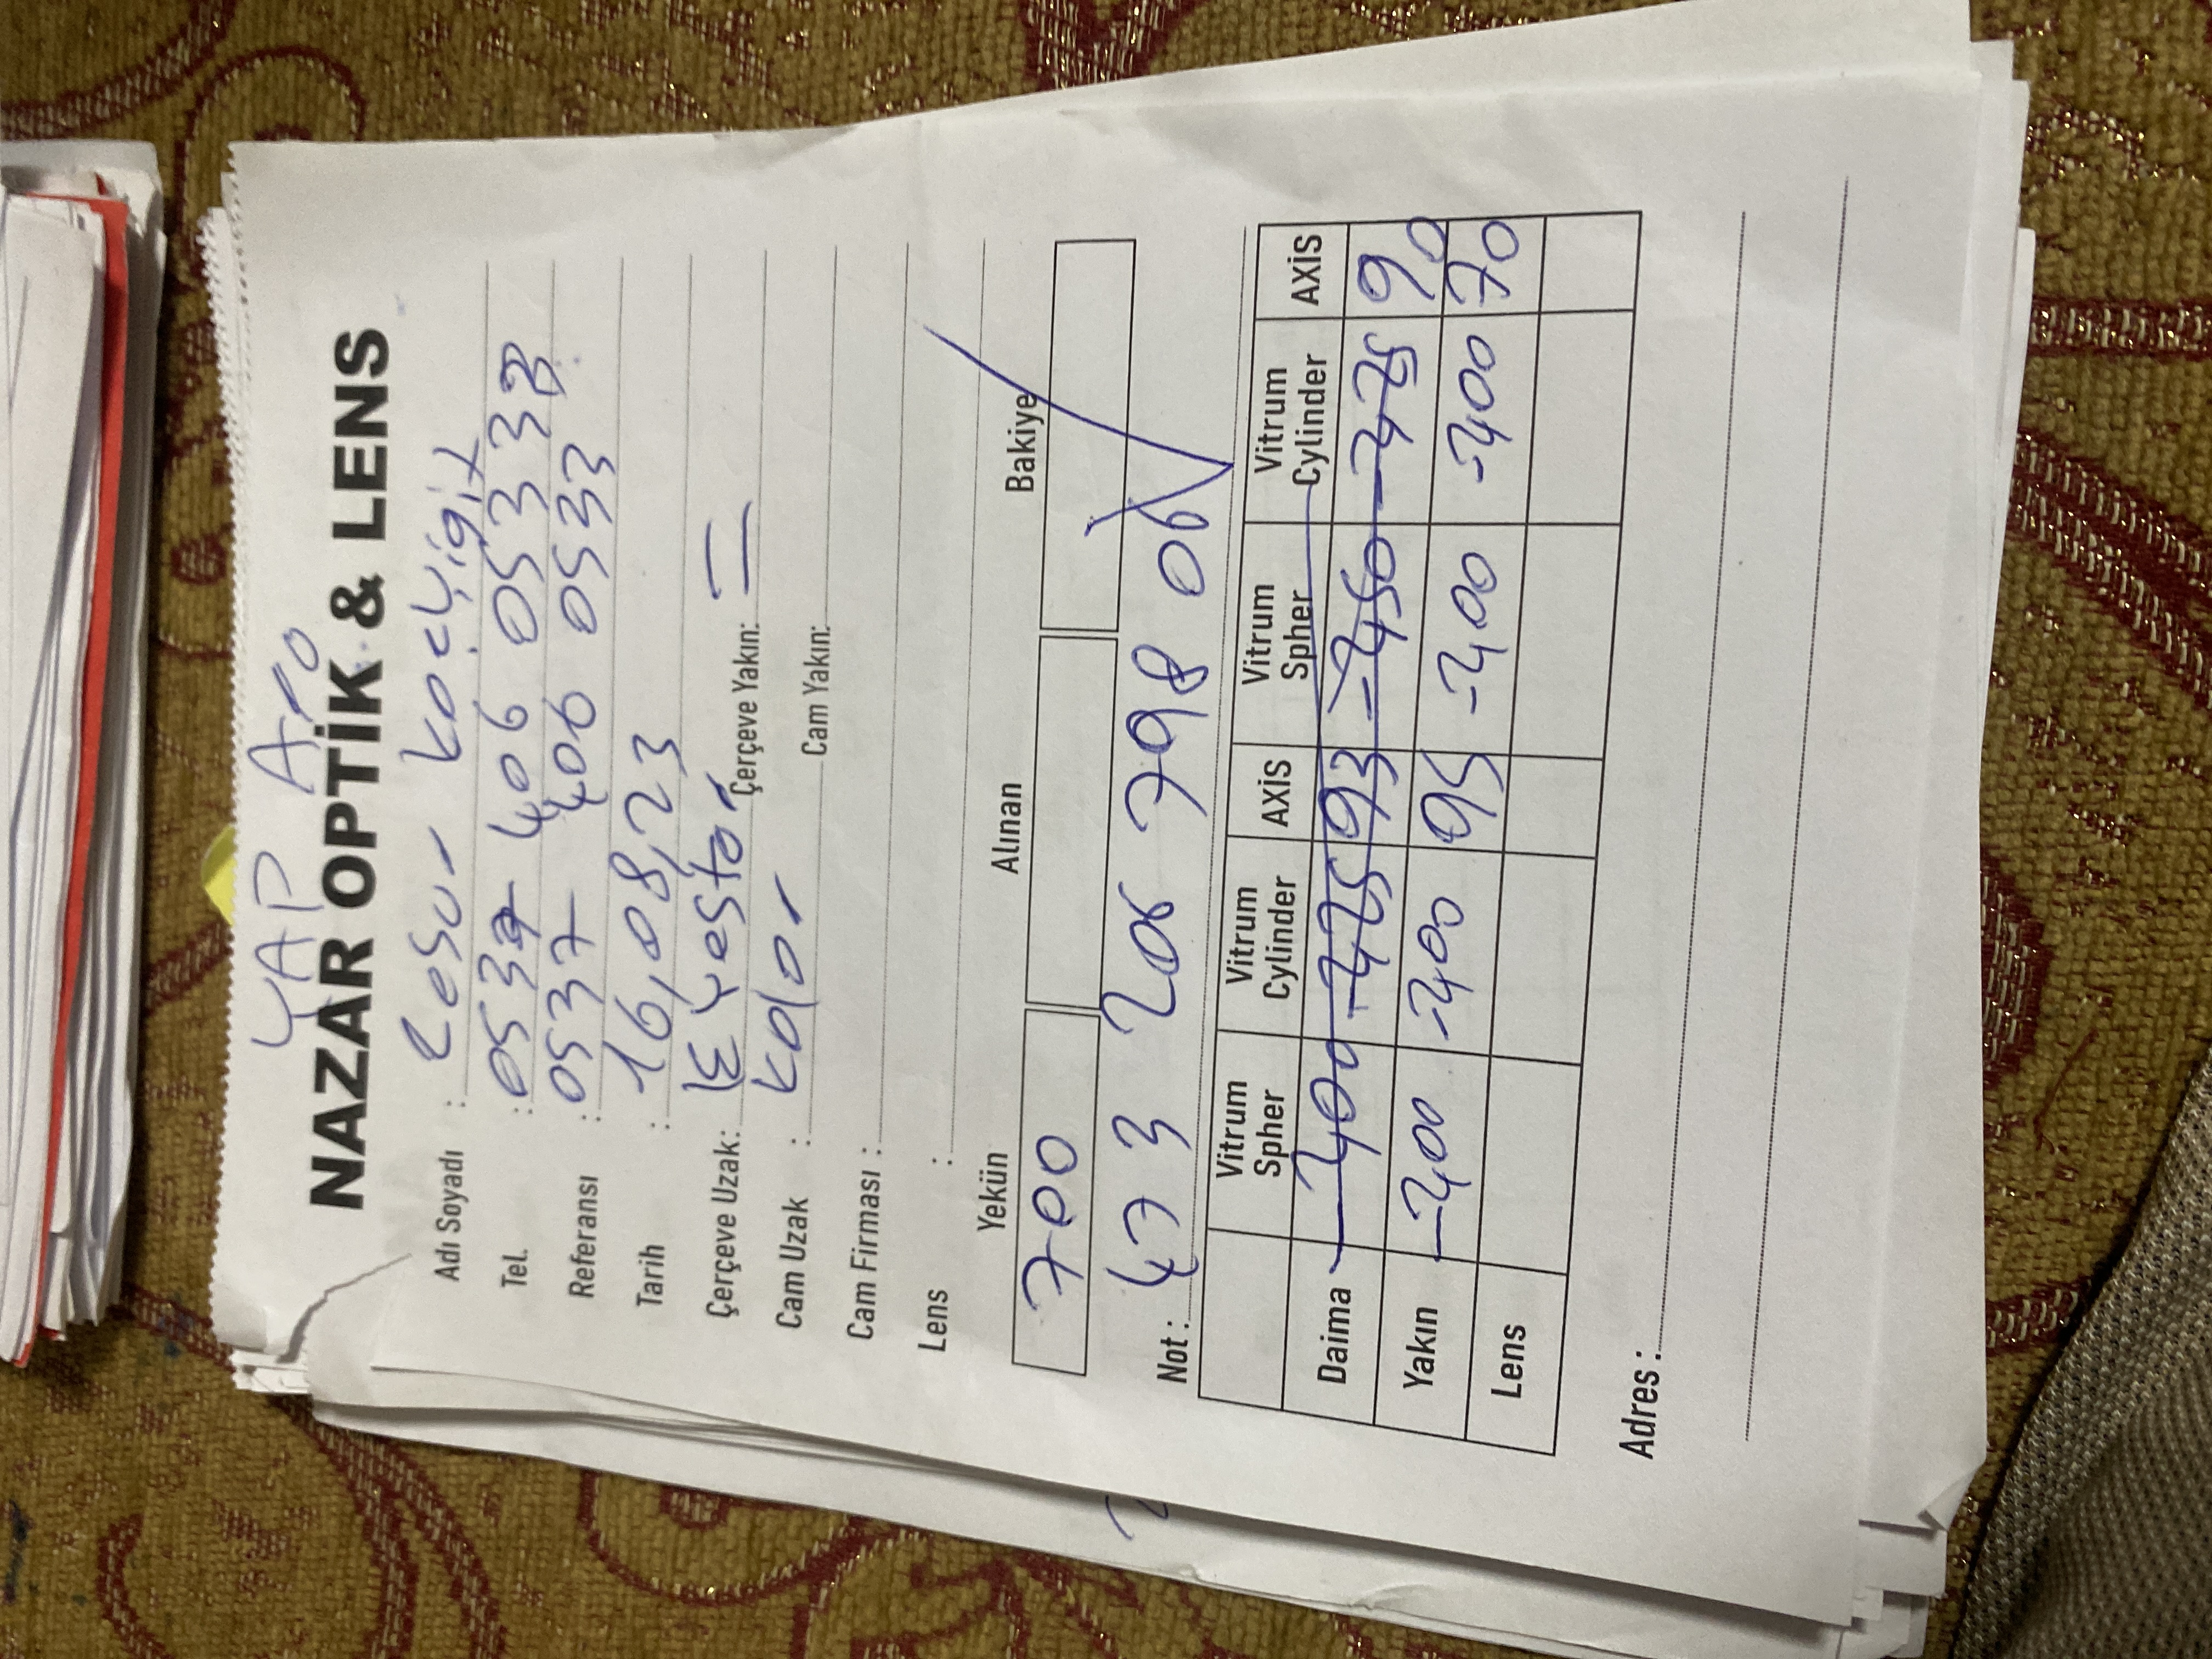 YAP Ara
NAZAR OPTİK & LENS
Adı Soyadı : Cesur Koçyiğit
Tel. : 0537 406 0533
Referansı : 0537 406 0533
Tarih : 16,08,23
Çerçeve Uzak: Çerçeve Yakın: =
Cam Uzak : Kolor Cam Yakın:
Cam Firması :
Lens :
Yekün Alınan Bakiye
700
Not : 473 206 798 06
Vitrum Spher Vitrum Cylinder AXİS Vitrum Spher Vitrum Cylinder AXİS
Daima -200 -225 93 -250 -225 90
Yakın -200 -200 95 -200 -200 70
Lens
Adres :